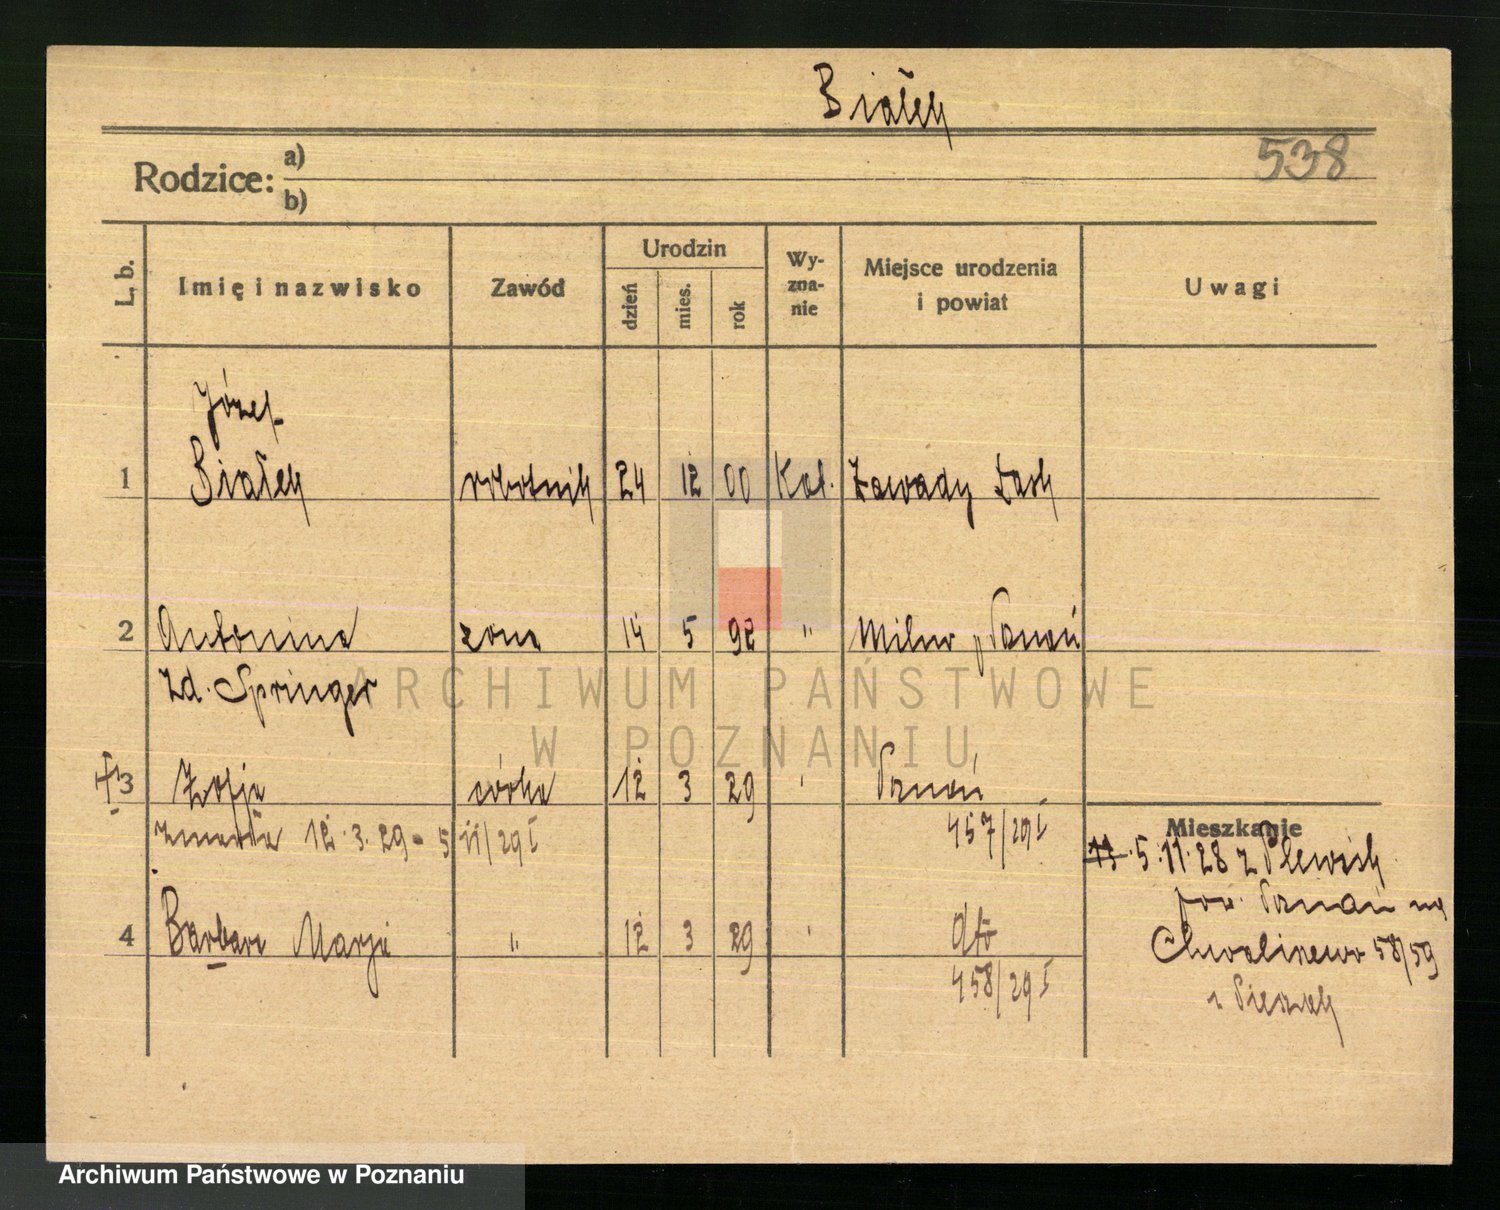 Białek
538
Rodzice: a)
b)
L. b.
Imię i nazwisko
Zawód
Urodzin
dzień
mies.
rok
Wy-
zna-
nie
Miejsce urodzenia
i powiat
Uwagi
Józef
1 Białek robotnik 24 12 00 Kat. Zawady Łask
2 Antonina żona 14 5 92 " Poznań
Zd. Springer
3 Zofja córka 12 3 29 " Poznań
zmarła 12.3.29 - 511/29 I 457/29 I
4 Barbara Marja " 12 3 29 " dto
458/29 I
Mieszkanie
5.11.28 z Plewisk
pow. Poznań na
Chwaliszewo 58/59
ARCHIWUM PAŃSTWOWE
W POZNANIU
Archiwum Państwowe w Poznaniu